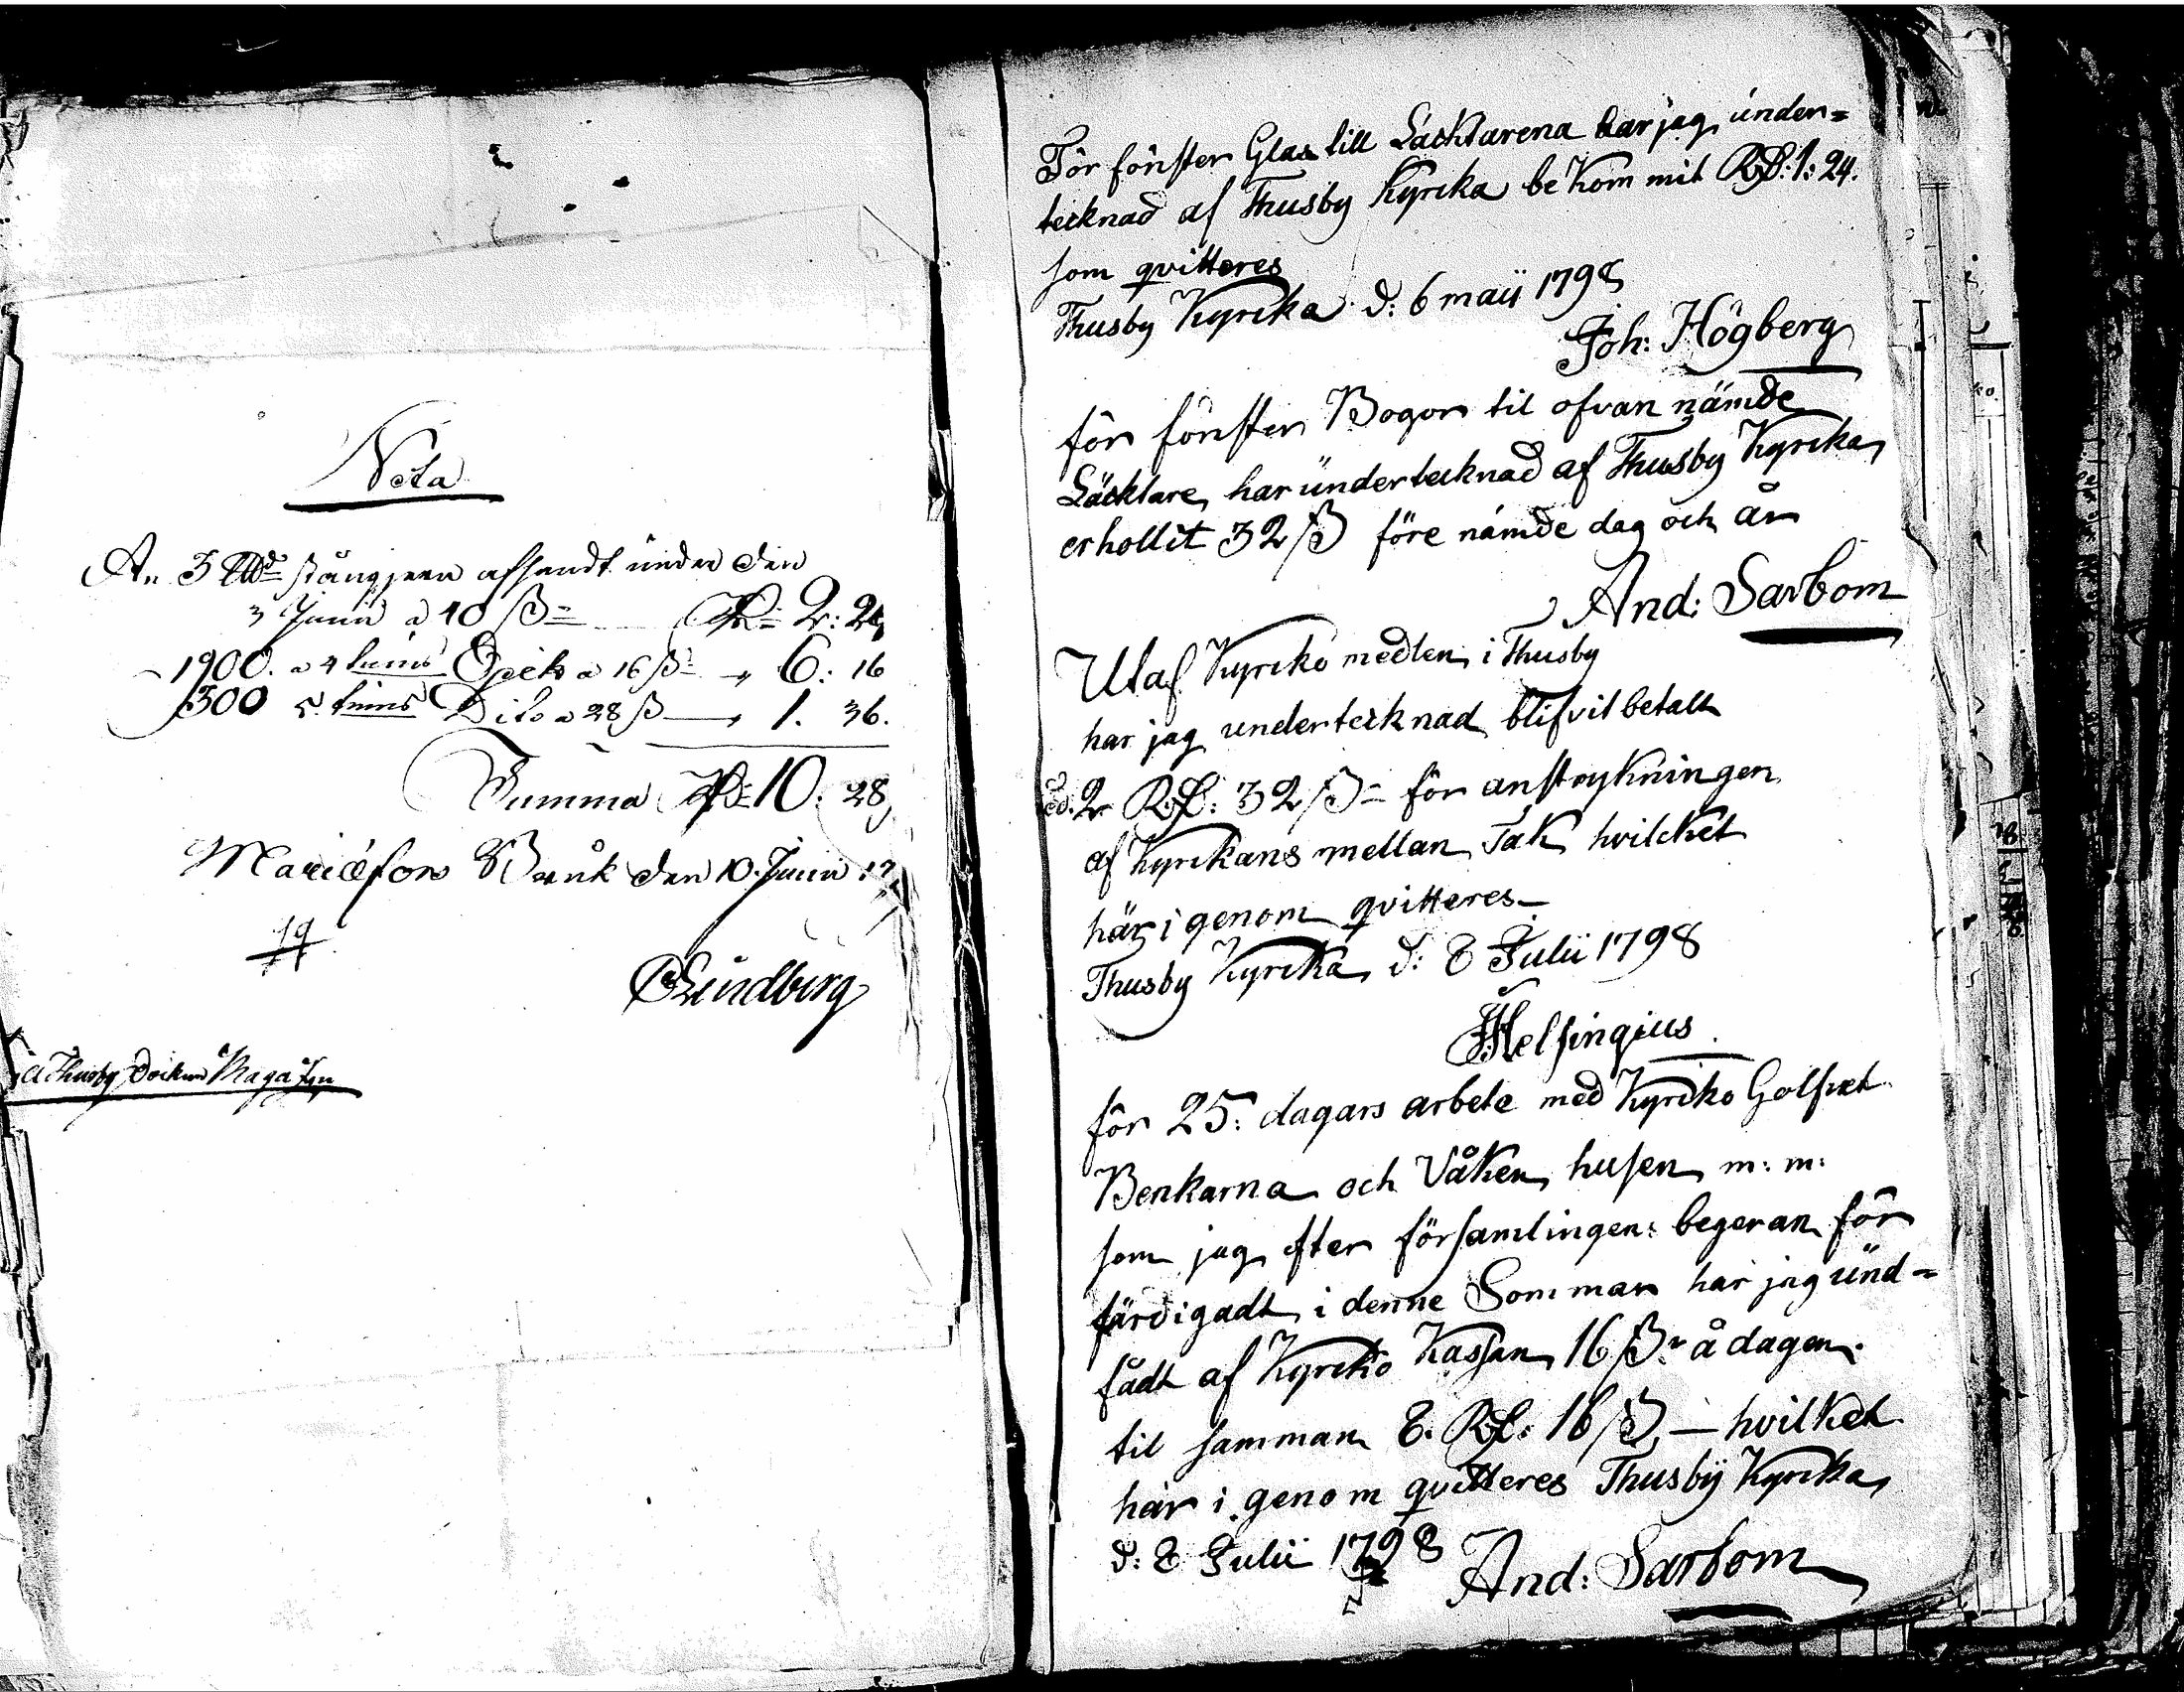 Nota
An 3 Lb stångjern afsendt under den
3 Junii a 40 ß = R= 2: 24
1900. a 4 tums Spik a 16 ß = " 6: 16
300 5 tums Dito a 28 ß — " 1. 36.
Summa Rd= 10: 28
Mariæfors Bruk den 10. Junii 17
19
CLindberg
a Thusby Sockens Magasin
För fönster Glas till Läcktarena har jag under=
tecknad af Thusby Kyrcka be kom mit Rd: 1: 24.
som qvitteres
Thusby Kyrcka d: 6 maii 1798
Joh: Högberg
för fönster Bogor til ofvan nämde
Läcktare har undertecknad af Thusby Kyrcka
erhollit 32 ß före nämde dag och år
And: Sarbom
Utaf Kyrcko medlen i Thusby
har jag undertecknad blifvit betalt
2 Rd: 32 ß = för anstrykningen
af Kyrckans mellan Tak hvilcket
här i genom qvitteres
Thusby Kyrcka d: 8 Julii 1798
Helsingius
för 25: dagars arbete med Kyrcko Golfvet
Benkarna och Våken husen m: m:
som jag efter församlingens begeran för
färdigadt i denne Sommar har jag und=
fådt af Kyrcko Kassan 16 ß r å dagen
til samman 8. Rd: 16 ß — hvilket
här i genom qvitteres Thusby Kyrcka
d: 8 Julii 1798 And: Sarbom